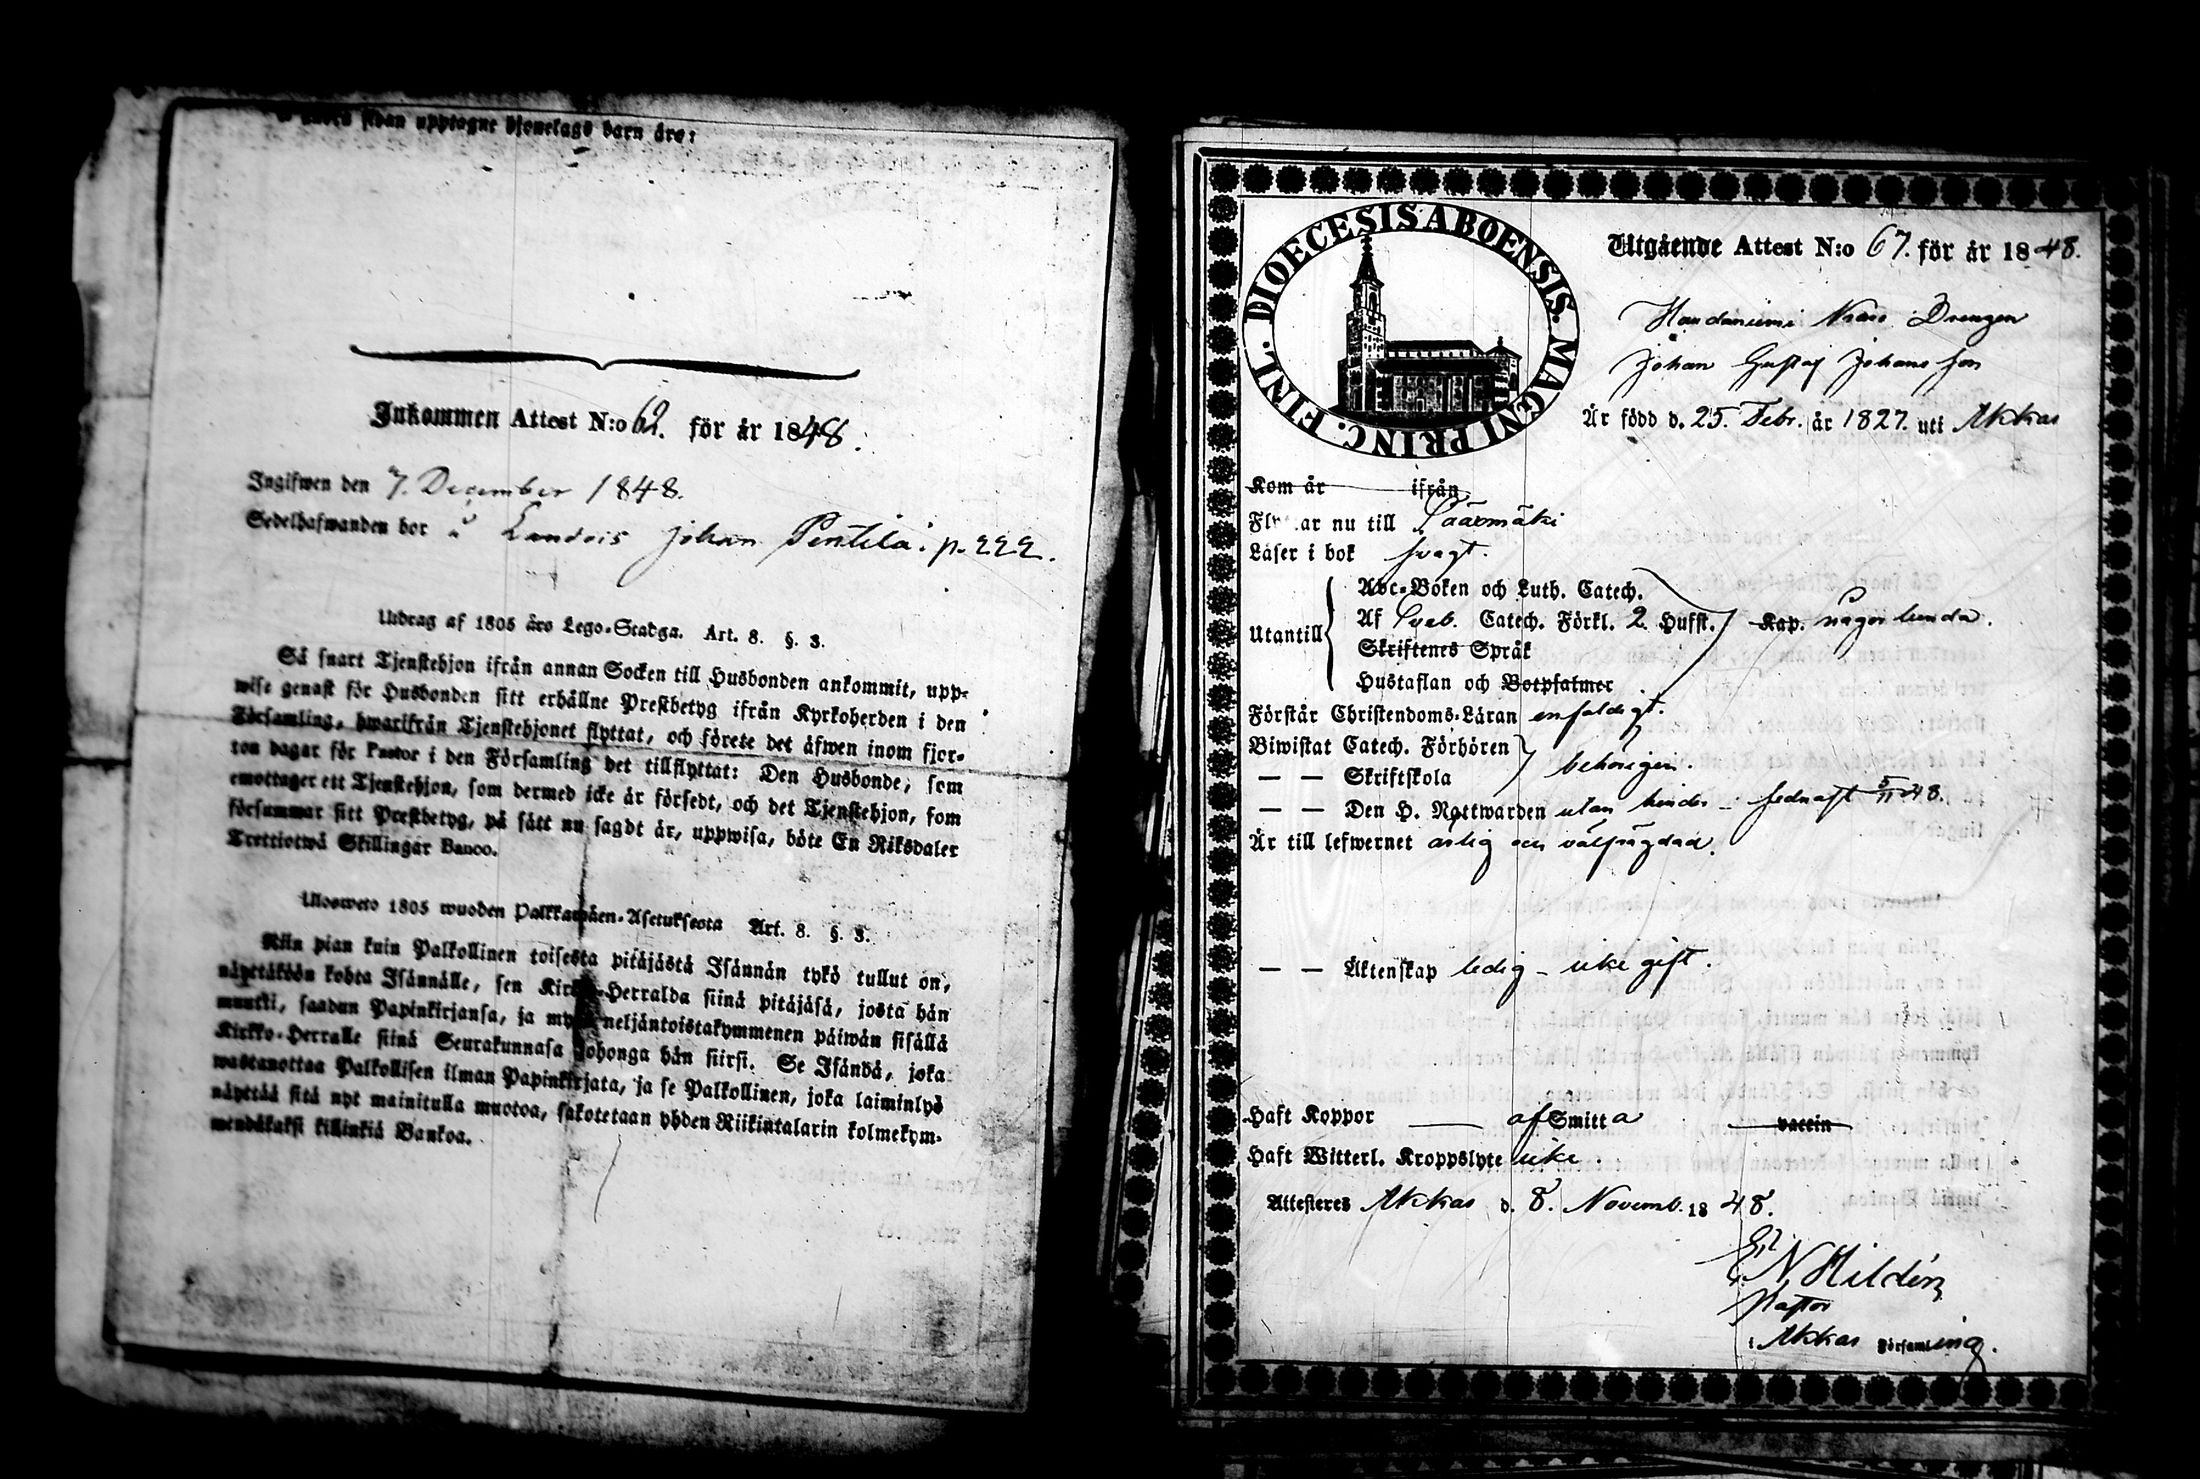 sidan upptagne hjonelags barn äro:
Inkommen Attest N:o 69. för år 1848.
Ingifwen den 7. December 1848.
Sedelhafwanden bor å Landois Johan Pentilä. p. 222.
Utdrag af 1805 års Lego-Stadga. Art. 8. §. 3.
Så snart Tjenstehjon ifrån annan Socken till Husbonden ankommit, upp-
wise genast för Husbonden sitt erhållne Prestbetyg ifrån Kyrkoherden i den
Församling, hwarifrån Tjenstehjonet flyttat, och förete det äfwen inom fjor-
ton dagar för Pastor i den Församling det tillflyttat: Den Husbonde, som
emottager ett Tjenstehjon, som dermed icke är försedt, och det Tjenstehjon, som
försummar sitt Prestbetyg, på sätt nu sagdt är, uppwisa, böte En Riksdaler
Trettiotwå Skillingar Banco.
Ulosweto 1805 wuoden Palkkawäen-Asetuksesta Art. 8. §. 3.
Niin pian kuin Palkollinen toisesta pitäjästä Isännän tykö tullut on,
näyttäköön kohta Isännälle, sen Kirkko-Herralda siinä pitäjäsä, josta hän
muutti, saadun Papinkirjansa, ja myös neljäntoistakymmenen päiwän sisällä
Kirkko-Herralle siinä Seurakunnasa johonga hän siirsi. Se Isändä, joka
wastanottaa Palkollisen ilman Papinkirjata, ja se Palkollinen, joka laiminlyö
näyttää sitä nyt mainitulla muotoa, sakotetaan yhden Riikintalarin kolmekym-
mendäkaksi killinkiä Bankoa.
DIOECESIS ABOENSIS. MAGNI PRINC. FINL.
Utgående Attest N:o 67. för år 1848.
Drengen
Johan Gustaf Johansson
Är född d. 25. Febr. år 1827. uti Akkas
Kom år ifrån
Flyttar nu till Säärmäki
Läser i bok svagt.
Abc-Boken och Luth. Catech.
Utantill Af Sveb. Catech. Förkl. 2 Hufst. Kap. någorlunda.
Skriftenes Språk
Hustaflan och Botpsalmer
Förstår Christendoms-Läran enfaldigt.
Biwistat Catech. Förhören
— — Skriftskola behörigen.
— — Den H. Nattwarden utan hinder – sednast 5/11 48.
Är till lefwernet ärlig och välfrägdad.
— — Äktenskap ledig – icke gift.
Haft Koppor af Smitta vaccin
Haft Witterl. Kroppslyte icke.
Attesteres Akkas d. 8. Novemb. 1848.
N. Hildén
Pastor
i Akkas Församling.